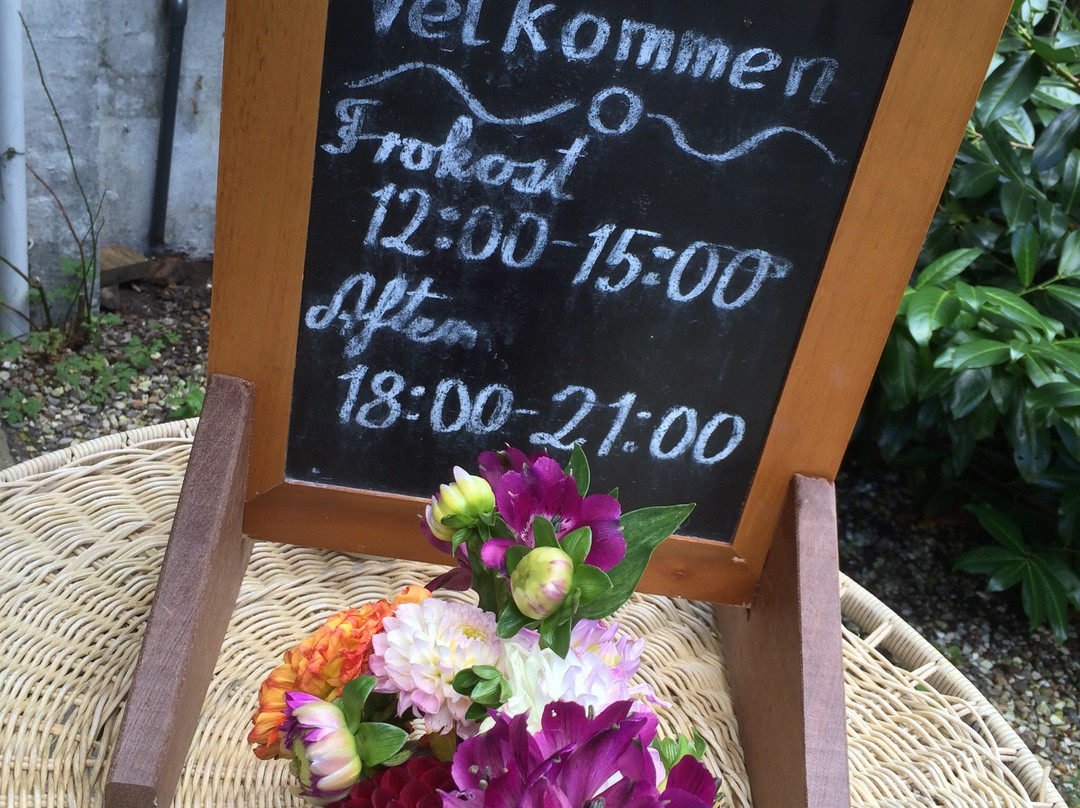 Velkommen
Frokost
12:00-15:00
Aften
18:00-21:00